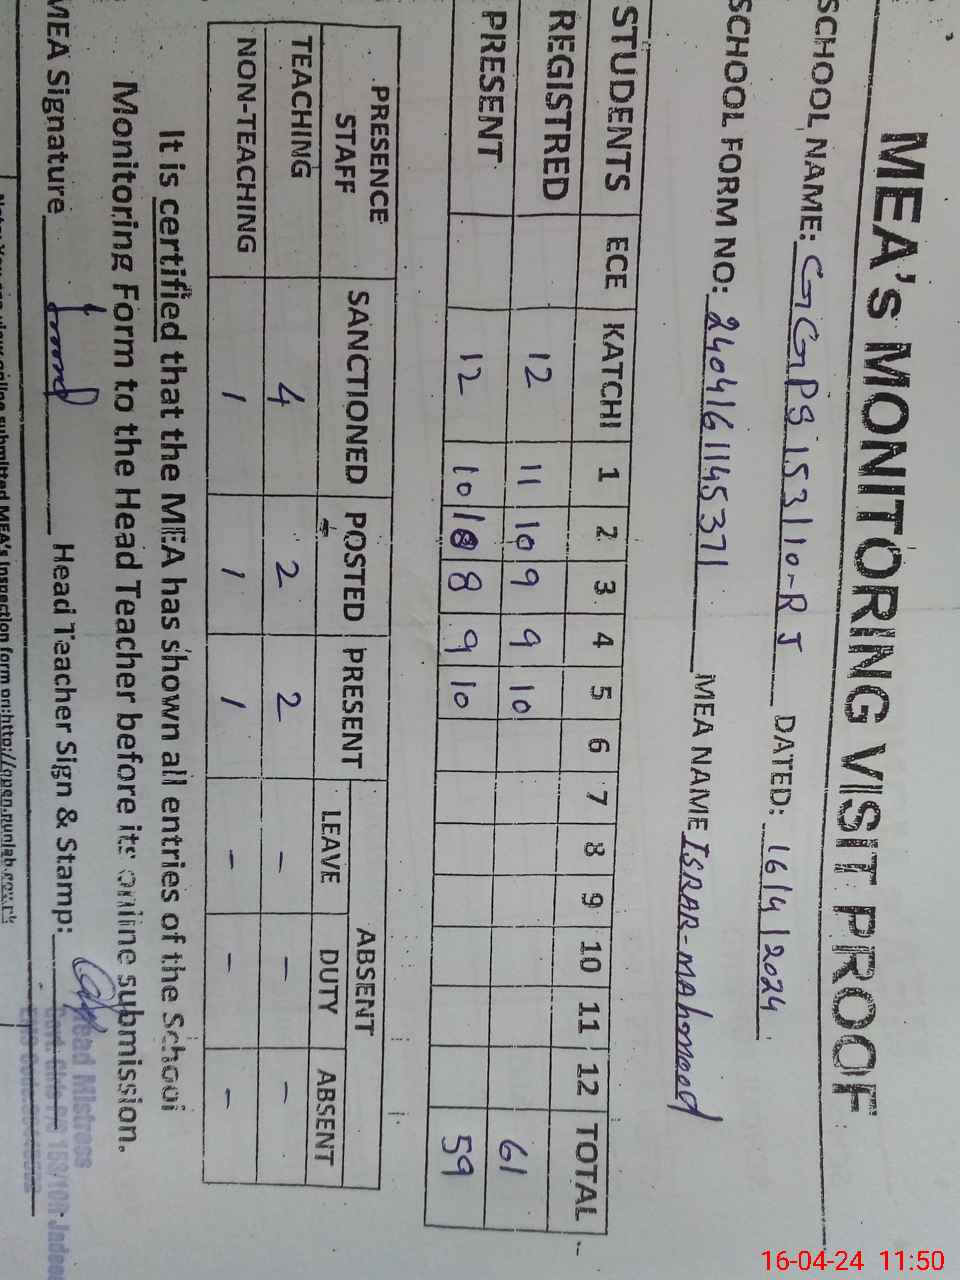 MEA's MONITORING VISIT PROOF
SCHOOL NAME: GGPS 153/10-R J DATED: 16/4/2024
SCHOOL FORM NO: 2404161145371 MEA NAME ISRAR-MAHomood
STUDENTS ECE KATCHI 1 2 3 4 5 6 7 8 9 10 11 12 TOTAL
REGISTRED 12 11 10 9 9 10 61
PRESENT 12 10 10 8 9 10 59
PRESENCE STAFF SANCTIONED POSTED PRESENT ABSENT
LEAVE DUTY ABSENT
TEACHING 4 2 2 - - -
NON-TEACHING 1 1 1 - - -
It is certified that the MEA has shown all entries of the School
Monitoring Form to the Head Teacher before its online submission.
MEA Signature Head Teacher Sign & Stamp:
Head Mistress
153/10R Jadeed
16-04-24 11:50